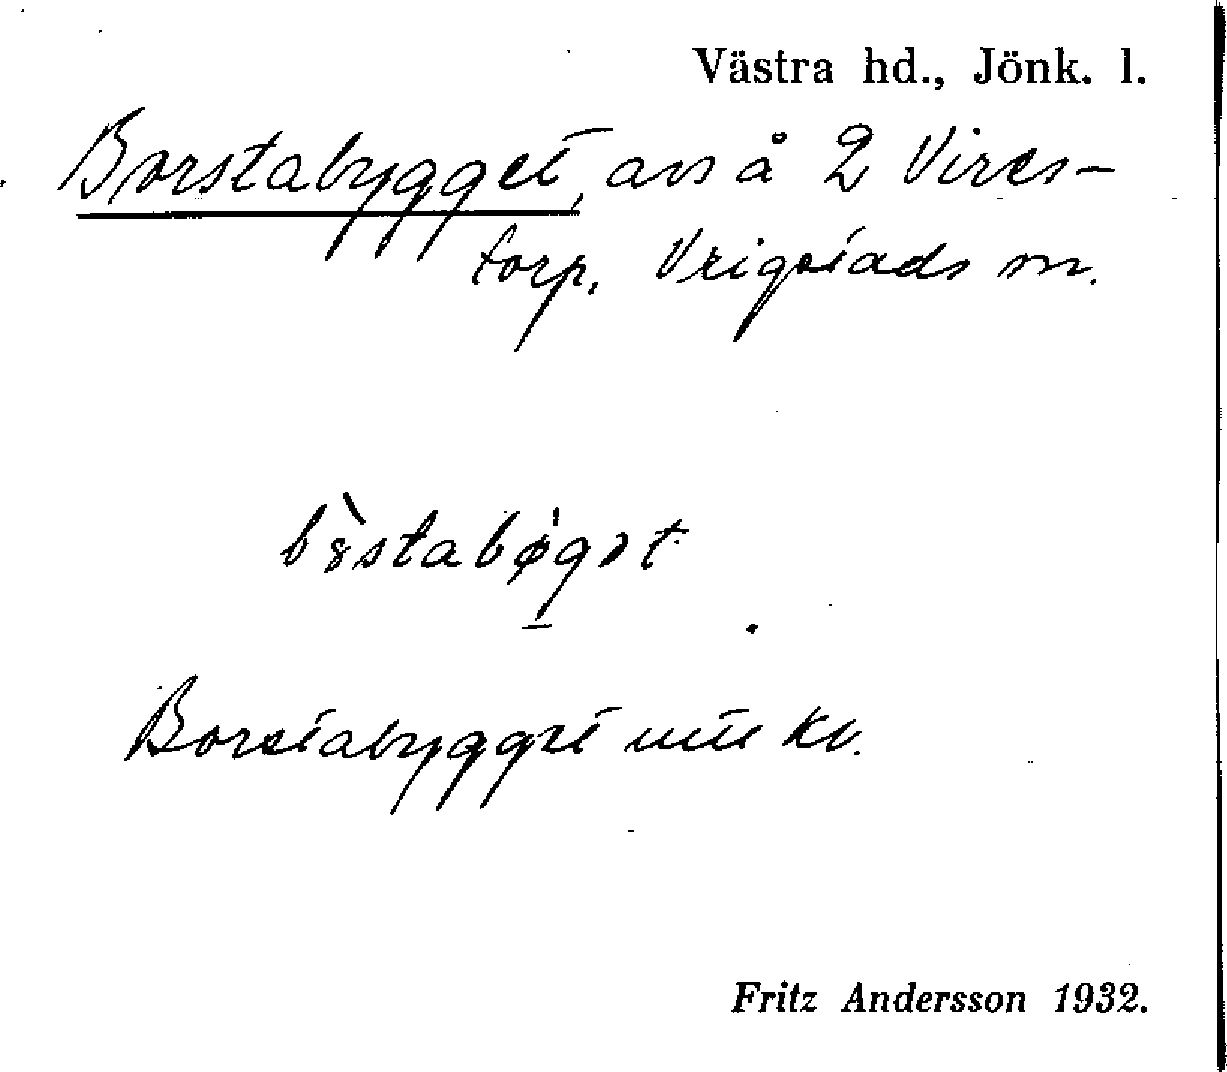 Västra hd., Jönk. l.
Borstabygget, avs å 2 Vires-
torp. Vrigstads sn.
bɷ̀stabø̀gət
Borstabygget utu kv.
Fritz Andersson 1932.